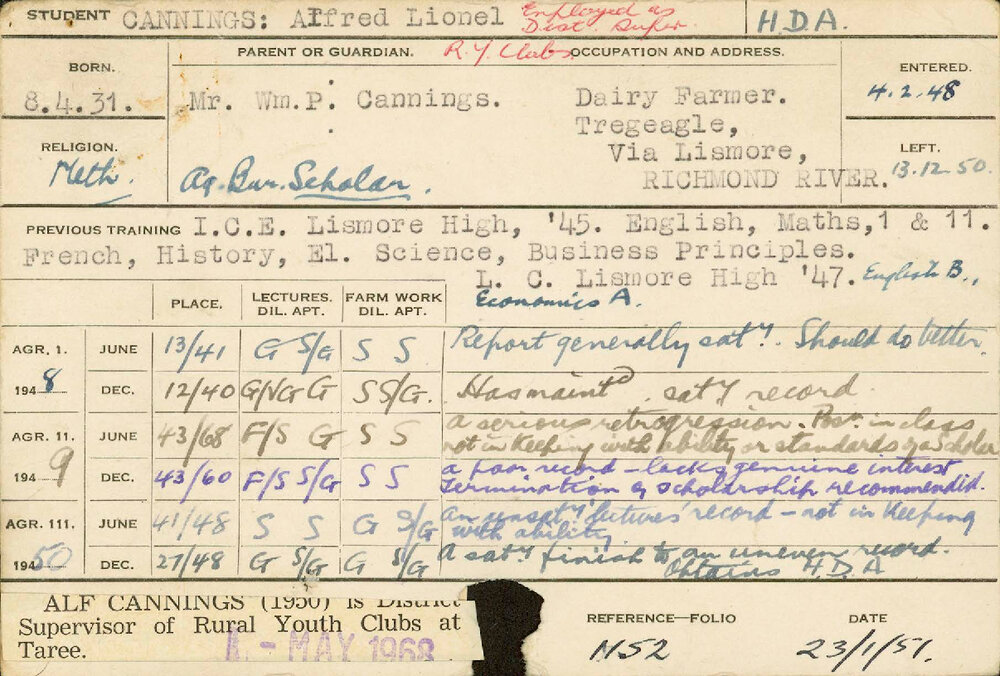 STUDENT CANNINGS: Alfred Lionel Employed as Dist. Super R.Y. Clubs H.D.A.
PARENT OR GUARDIAN. OCCUPATION AND ADDRESS.
BORN. ENTERED.
8.4.31. Mr. Wm.P. Cannings. Dairy Farmer. 4.2.48
Tregeagle,
RELIGION. Via Lismore, LEFT.
Meth. Ag. Bur. Scholar. RICHMOND RIVER. 13.12.50.
PREVIOUS TRAINING I.C.E. Lismore High, '45. English, Maths,1 & 11.
French, History, El. Science, Business Principles.
L. C. Lismore High '47. English B.,
Economics A.
PLACE. LECTURES. DIL. APT. FARM WORK DIL. APT.
AGR. 1. JUNE 13/41 G S/G S S Report generally saty. Should do better.
1948 DEC. 12/40 G/VG G S S/G. Has maintd saty record.
AGR. 11. JUNE 43/68 F/S G S S A serious retrogression. Posn. in class
not in keeping with ability or standards of a Scholar
1949 DEC. 43/60 F/S S/G S S A poor record - lacks genuine interest
Termination of scholarship recommended.
AGR. 111. JUNE 41/48 S S G S/G An unsaty record - not in keeping
with ability.
1950 DEC. 27/48 G S/G G S/G A saty finish to an uneven record.
Obtains H.D.A
ALF CANNINGS (1950) is District
Supervisor of Rural Youth Clubs at
Taree.
- MAY 1968
REFERENCE—FOLIO DATE
N52 23/1/51.